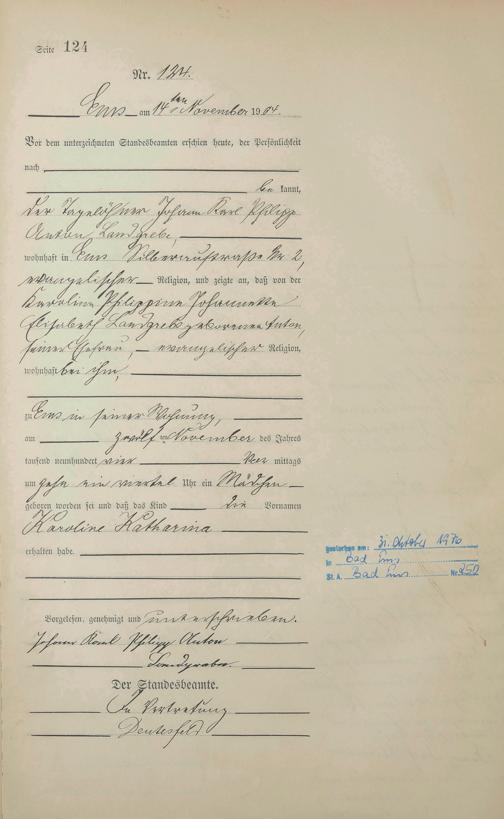 Seite 124
Nr. 124.
Ems am 14ten November 1904.
Vor dem unterzeichneten Standesbeamten erschien heute, der Persönlichkeit
nach
be kannt,
der Tagelöhner Johann Karl Philipp
Anton Landgrebe,
wohnhaft in Ems Silberaustraße Nr 2,
evangelischer Religion, und zeigte an, daß von der
Karoline Philippine Johannette
Elisabeth Landgrebe geborenen Anton,
seiner Ehefrau, evangelischer Religion,
wohnhaft bei ihm,
zu Ems in seiner Wohnung,
am zwölften November des Jahres
tausend neunhundert vier Vor mittags
um zehn ein viertel Uhr ein Mädchen
geboren worden sei und daß das Kind die Vornamen
Karoline Katharina
erhalten habe.
Vorgelesen, genehmigt und unterschrieben.
Johann Karl Philipp Anton
Landgrebe
Der Standesbeamte.
In Vertretung
gestorben am: 31. Oktober 1970
in Bad Ems
St. A. Bad Ems Nr. 350